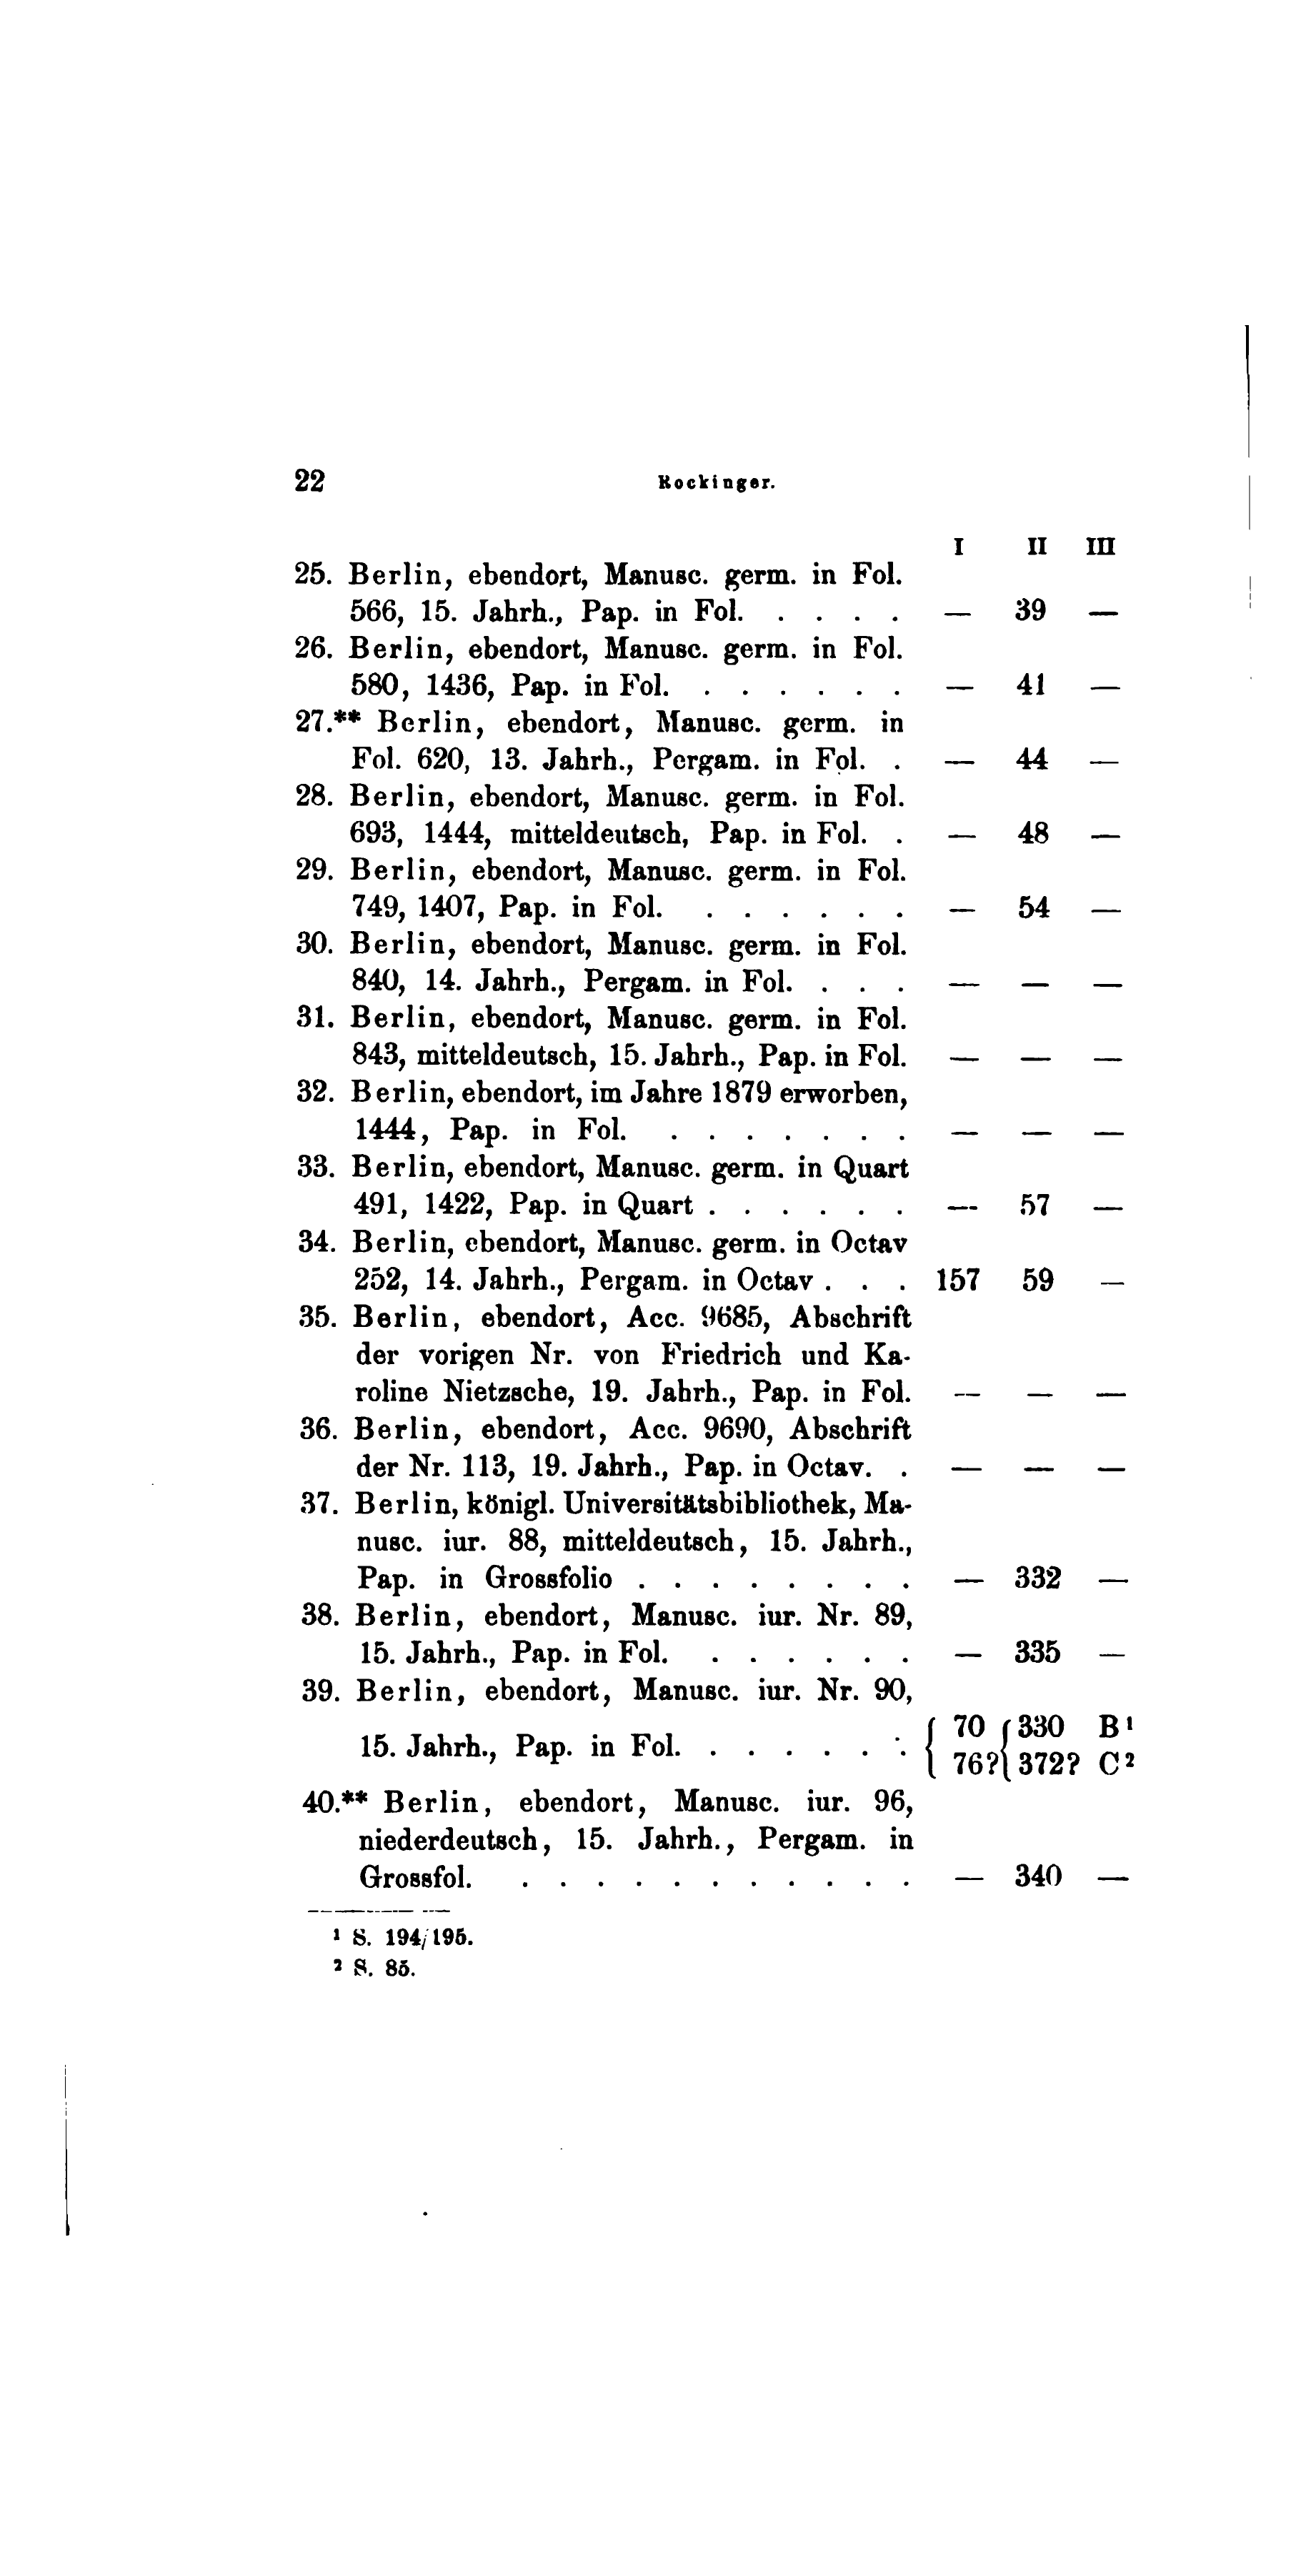 22 Rockinger.
I II III
25. Berlin, ebendort, Manusc. germ. in Fol.
566, 15. Jahrh., Pap. in Fol. . . . . — 39 —
26. Berlin, ebendort, Manusc. germ. in Fol.
580, 1436, Pap. in Fol. . . . . . . — 41 —
27.** Berlin, ebendort, Manusc. germ. in
Fol. 620, 13. Jahrh., Pergam. in Fol. . — 44 —
28. Berlin, ebendort, Manusc. germ. in Fol.
693, 1444, mitteldeutsch, Pap. in Fol. . — 48 —
29. Berlin, ebendort, Manusc. germ. in Fol.
749, 1407, Pap. in Fol. . . . . . . — 54 —
30. Berlin, ebendort, Manusc. germ. in Fol.
840, 14. Jahrh., Pergam. in Fol. . . . — — —
31. Berlin, ebendort, Manusc. germ. in Fol.
843, mitteldeutsch, 15. Jahrh., Pap. in Fol. — — —
32. Berlin, ebendort, im Jahre 1879 erworben,
1444, Pap. in Fol. . . . . . . . — — —
33. Berlin, ebendort, Manusc. germ. in Quart
491, 1422, Pap. in Quart . . . . . . — 57 —
34. Berlin, ebendort, Manusc. germ. in Octav
252, 14. Jahrh., Pergam. in Octav . . . 157 59 —
35. Berlin, ebendort, Acc. 9685, Abschrift
der vorigen Nr. von Friedrich und Ka-
roline Nietzsche, 19. Jahrh., Pap. in Fol. — — —
36. Berlin, ebendort, Acc. 9690, Abschrift
der Nr. 113, 19. Jahrh., Pap. in Octav. . — — —
37. Berlin, königl. Universitätsbibliothek, Ma-
nusc. iur. 88, mitteldeutsch, 15. Jahrh.,
Pap. in Grossfolio . . . . . . . . — 332 —
38. Berlin, ebendort, Manusc. iur. Nr. 89,
15. Jahrh., Pap. in Fol. . . . . . . — 335 —
39. Berlin, ebendort, Manusc. iur. Nr. 90,
{ 70 { 330 B¹
15. Jahrh., Pap. in Fol. . . . . . . .
76? 372? C²
40.** Berlin, ebendort, Manusc. iur. 96,
niederdeutsch, 15. Jahrh., Pergam. in
Grossfol. . . . . . . . . . . . — 340 —
¹ S. 194/195.
² S. 85.